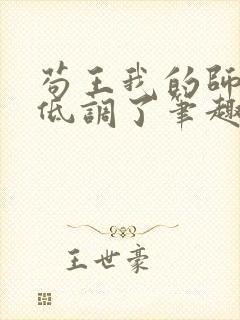 苟王我的師
低調了筆趣
王世豪